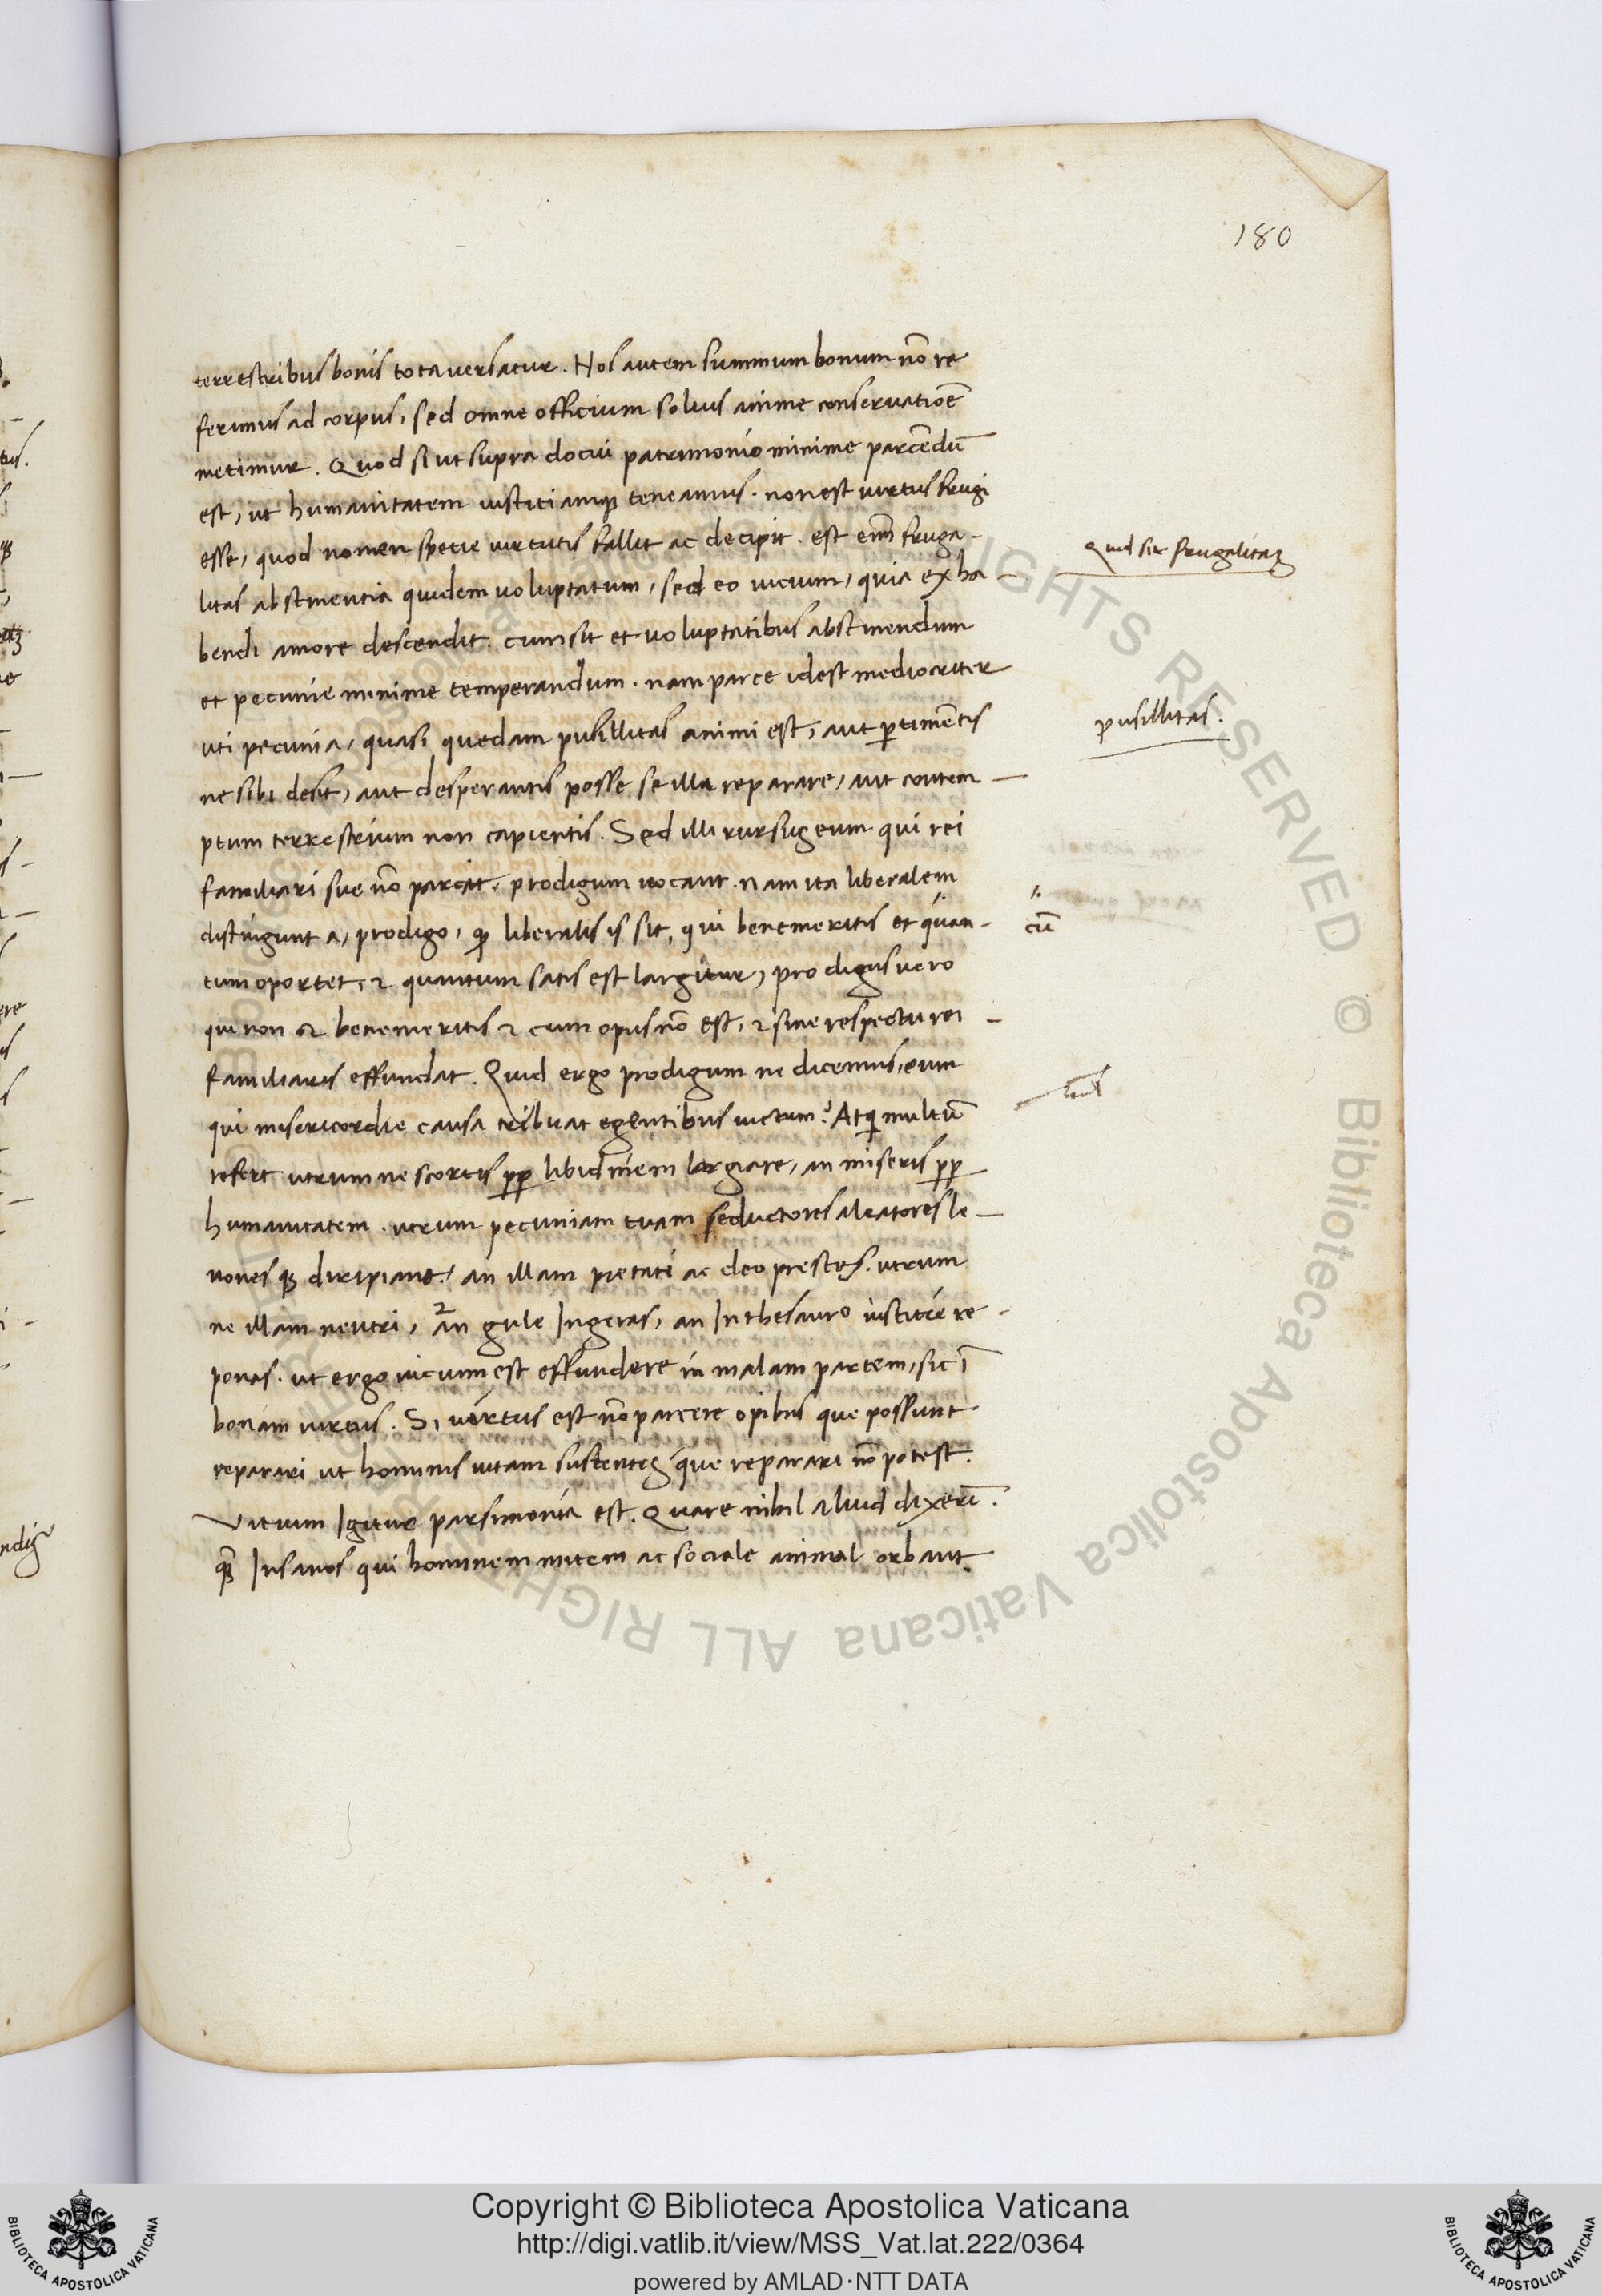 180
terrestribus bonis tota versatur. Nos autem summum bonum nō re
ferimus ad corpus, sed omne officium solius anime conservatiōe
metimur. Quod si ut supra docui patrimonio minime parcēdū
est, ut humanitatem iustitiamqȝ teneamus. non est virtus frugi
esse, quod nomen specie virtutis fallit ac decipit. est enī fruga-
litas abstinentia quidem voluptatum, sed eo vicium, quia ex ha-
bendi amore descendit. cum sit et voluptatibus abstinendum
et pecunie minime temperandum. nam parce idest mediocriter
uti pecunia, quasi quedam pusillitas animi est, aut ꝑtimētis
ne sibi desit, aut desperantis posse se illa reparare, aut contem-
ptum terrestrium non capientis. Sed illi rursus eum qui rei
familiari sue nō parcit, prodigum vocant. nam ita liberalem
distingunt a, prodigo, ꝙ liberalis is sit, qui benemeritis et quan-
tum oportet, ⁊ quantum satis est largitur, prodigus vero
qui non ⁊ benemeritis ⁊ cum opus nō est, ⁊ sine respectu rei -
familiaris effundat. Quid ergo prodigum ne dicemus, eum
qui misericordie causa tribuat egentibus victum? Atqi multū
refert utrum ne scortis ꝓp libidinem largiare, an miseris ꝓp
humanitatem. utrum pecuniam tuam seductores aleatores le-
nones qȝ diripiant, an illam pietati ac deo prestes. utrum
ne illam ventri, ⁊ an gule Ingeras, an In thesauro iustitie re-
ponas. ut ergo vicium est effundere in malam partem, sic ī
bonam virtus. Si virtus est nō parcere opibus que possunt
reparari ut hominis vitam sustentes que reparari nō potest.
Vitium Igitur parsimonia est. Quare nihil aliud dixerī.
qȝ Insanos qui hominem mitem ac sociale animal orbant.
Quid sit frugalitas
pusillitas.
cū
Copyright © Biblioteca Apostolica Vaticana
http://digi.vatlib.it/view/MSS_Vat.lat.222/0364
powered by AMLAD·NTT DATA